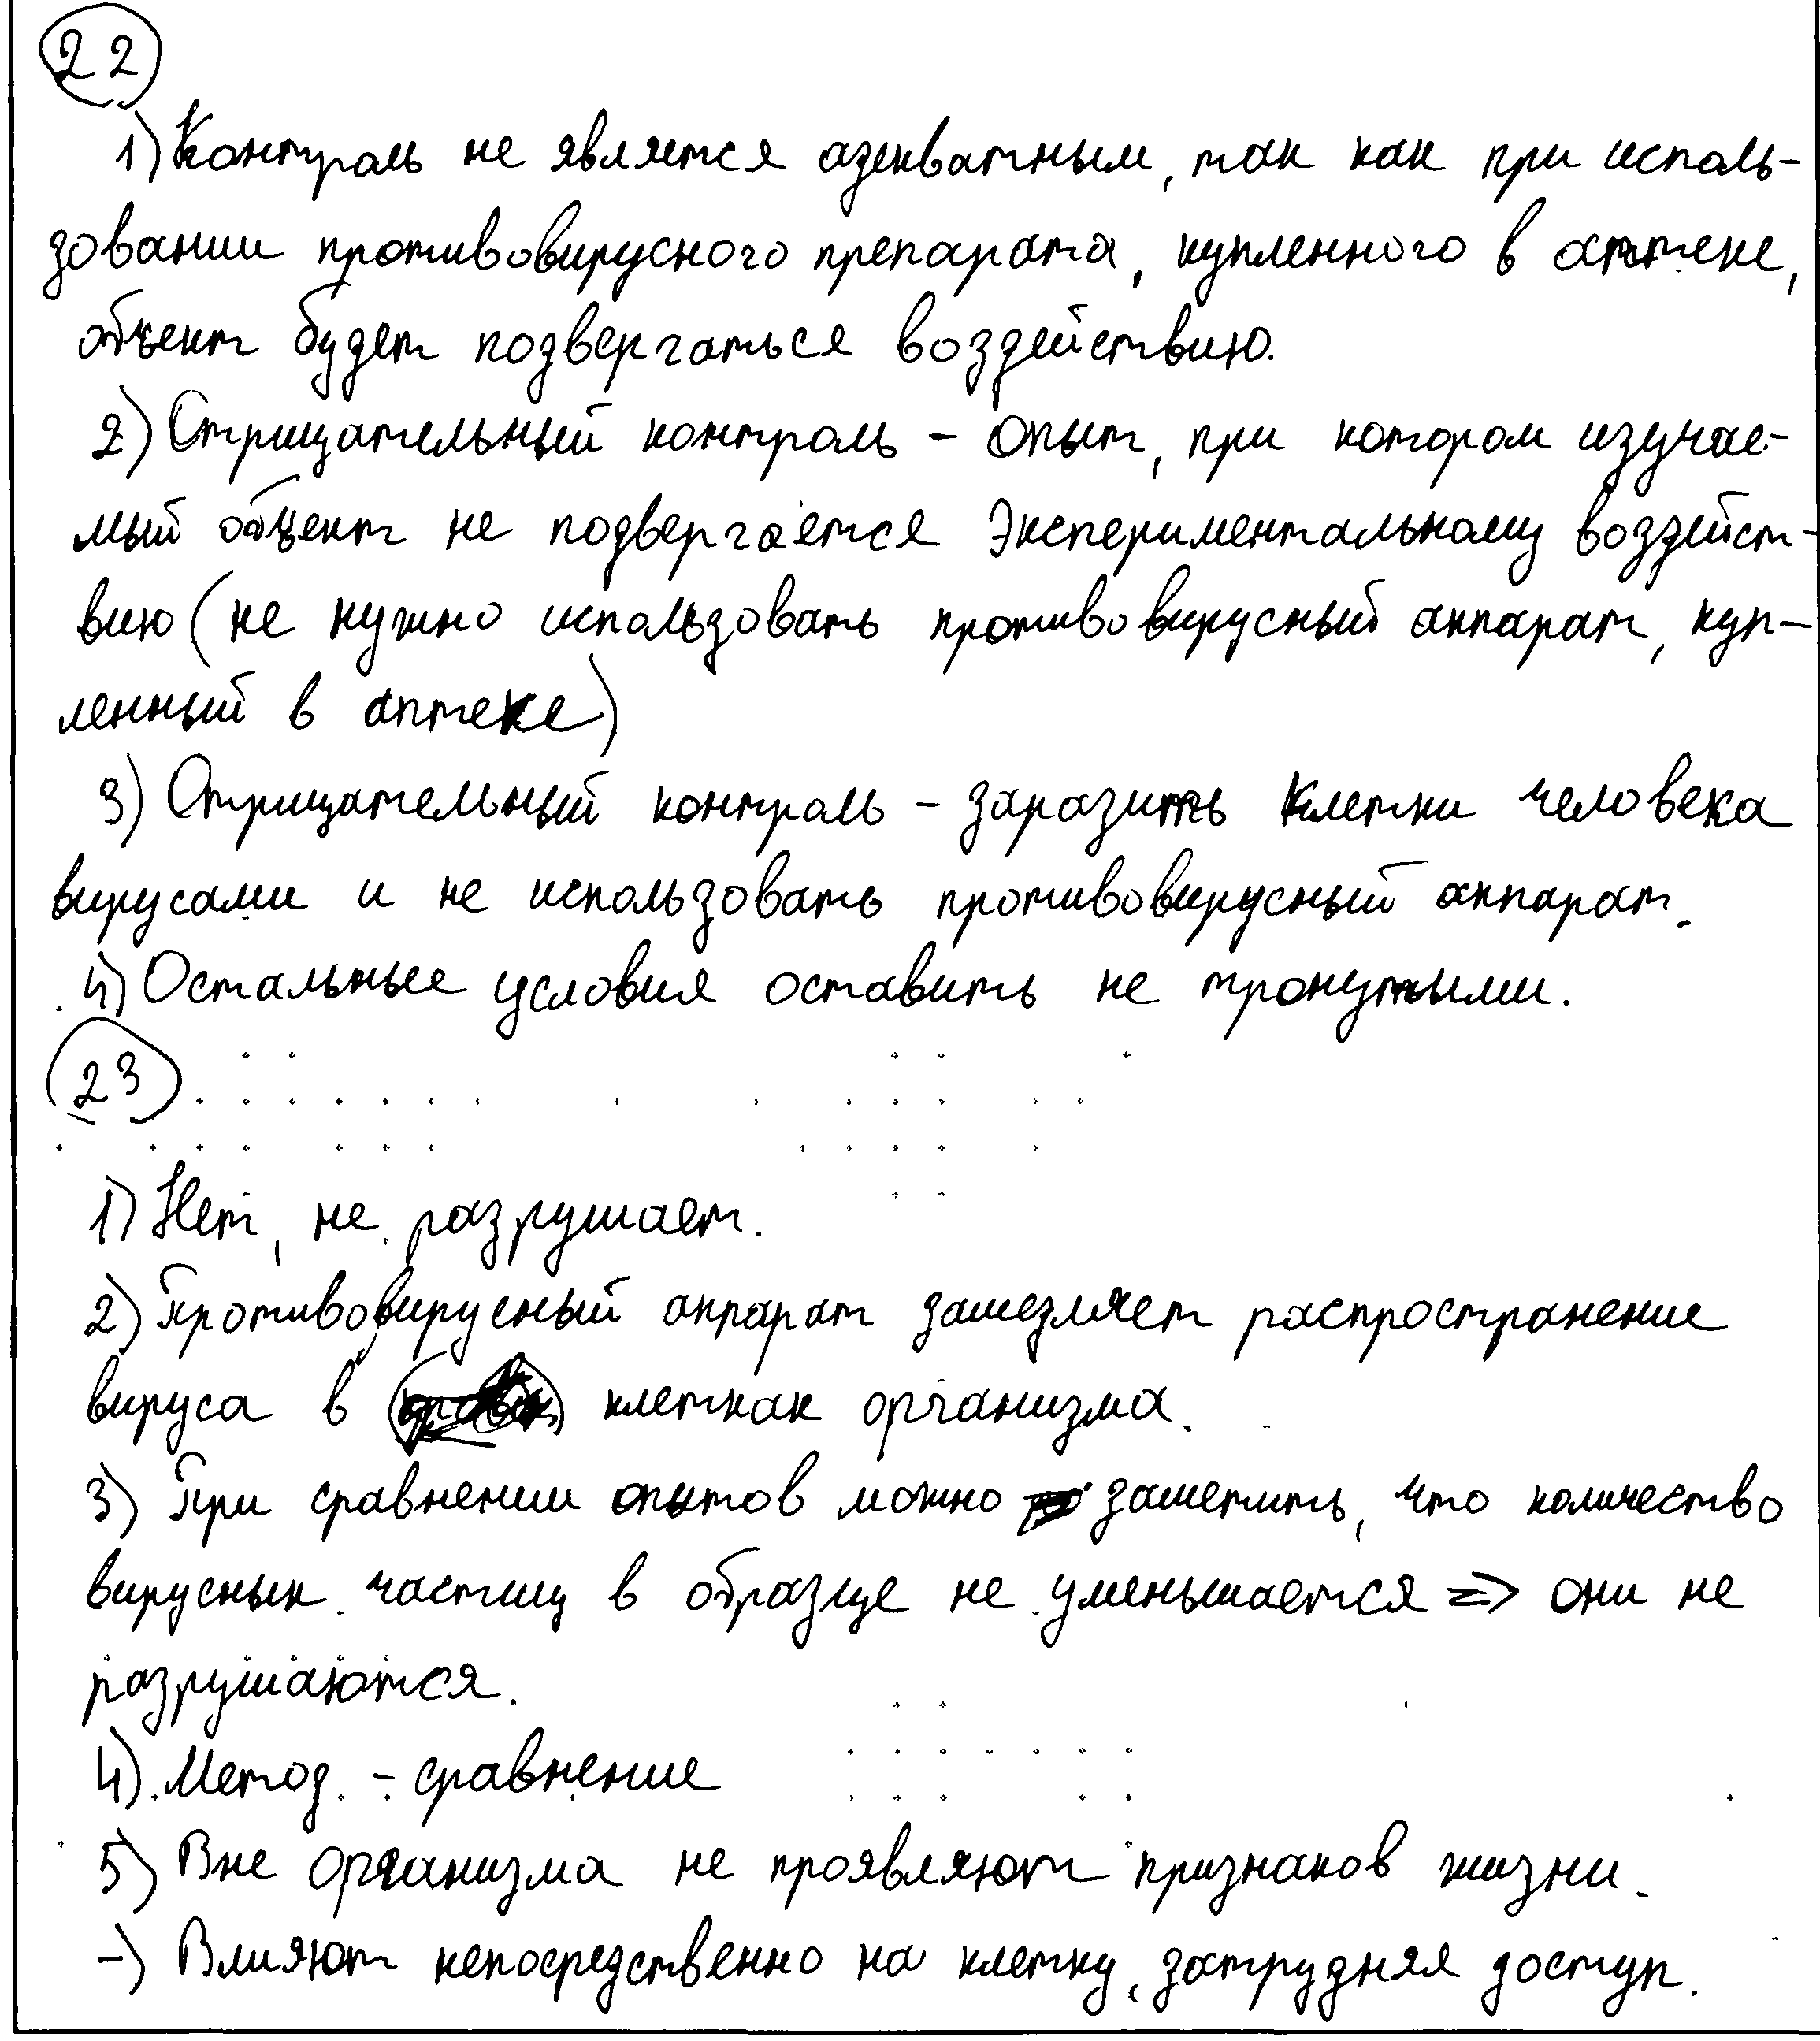 22
1) Контроль не является адекватным, так как при исполь-
зовании противовирусного препарата, купленного в аптеке,
объект будет подвергаться воздействию.
2) Отрицательный контроль - опыт, при котором изучае-
мый объект не подвергается экспериментальному воздейст-
вию (не нужно использовать противовирусный аппарат, куп-
ленный в аптеке)
3) Отрицательный контроль - заразить клетки человека
вирусами и не использовать противовирусный аппарат.
4) Остальные условия оставить не тронутыми.
23
1) Нет, не разрушает.
2) Противовирусный аппарат замезляет распространение
вируса в клетках организма.
3) При сравнении опытов можно заметить, что количество
вирусных частиц в образце не уменьшается => они не
разрушаются.
4) Метод - сравнение
5) Вне организма не проявляют признаков жизни.
-) Влияют непосредственно на клетку, затрудняя доступ.